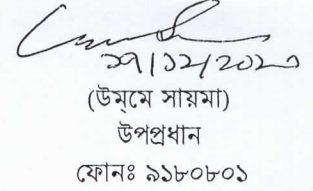 ২৭/১২/২০২৩
(উম্‌মে সায়মা)
উপপ্রধান
ফোনঃ ৯১৮০৮০১